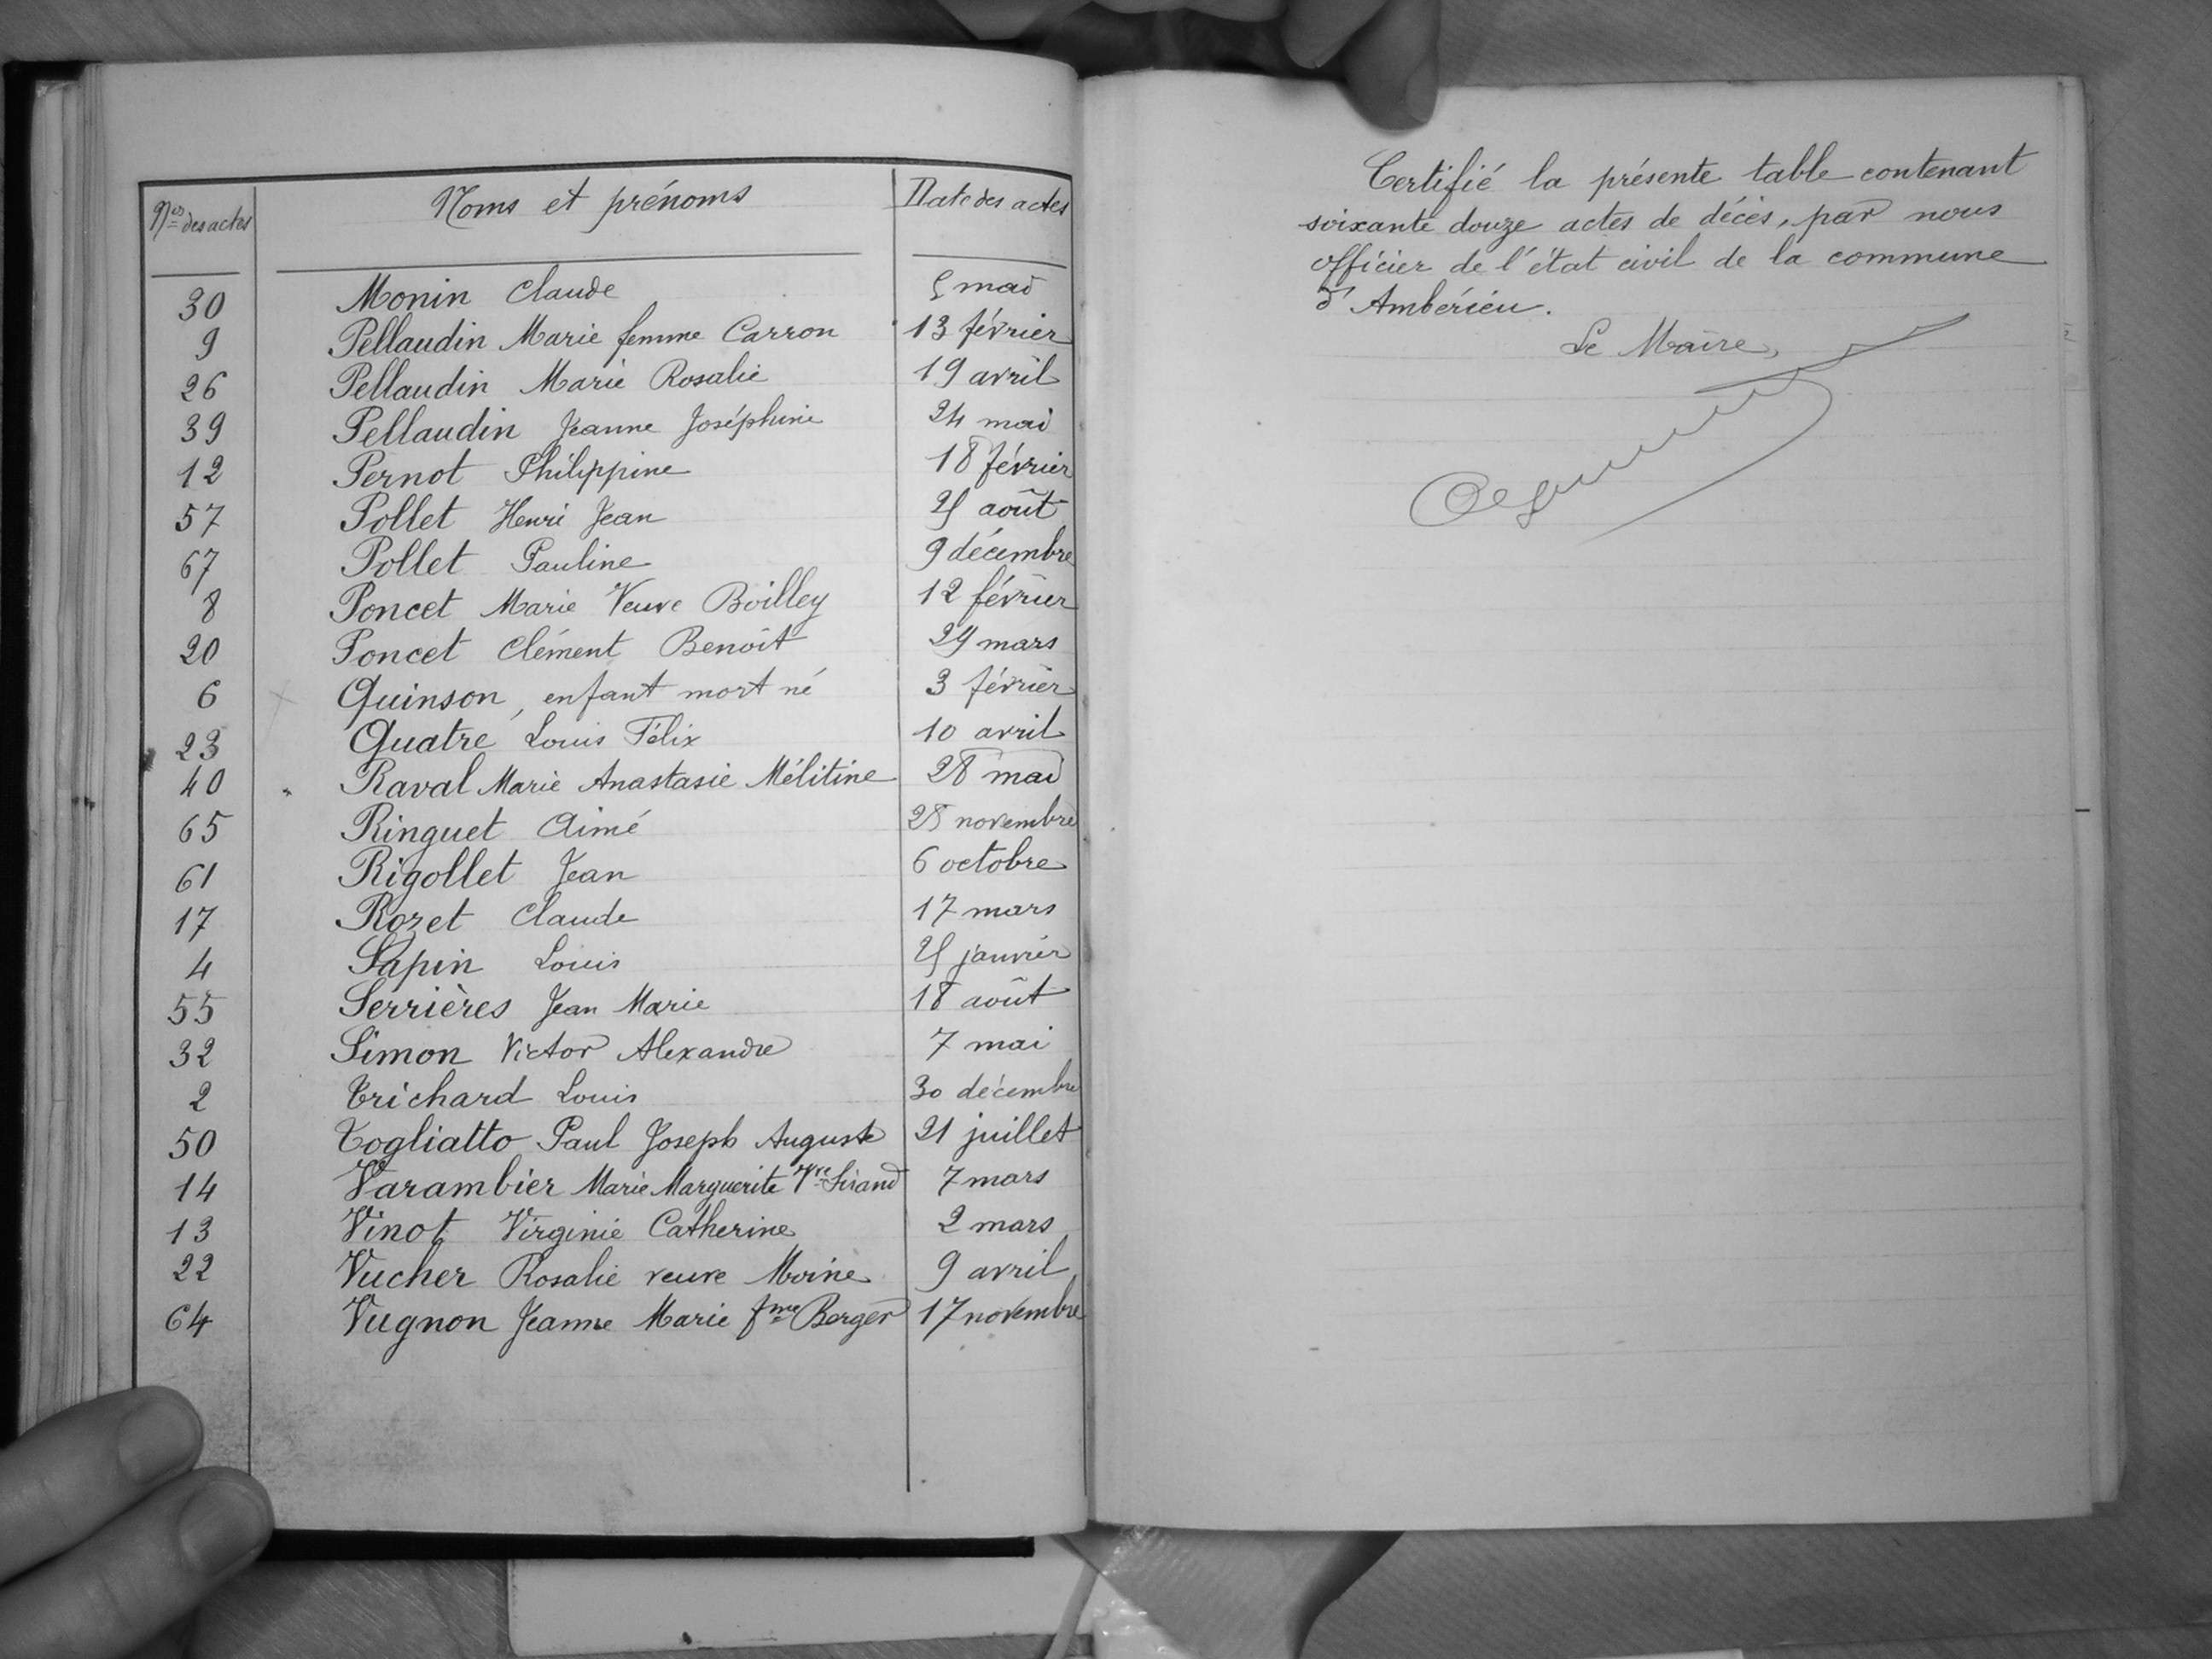 Nos des actes Noms et prénoms Date des actes
30 Monin Claude 5 mai
9 Pellaudin Marie femme Carron 13 février
26 Pellaudin Marie Rosalie 19 avril
39 Pellaudin Jeanne Joséphine 24 mai
12 Pernot Philippine 18 février
57 Pollet Henri Jean 25 août
67 Pollet Pauline 9 décembre
8 Poncet Marie Veuve Boilley 12 février
20 Poncet Clément Benoît 29 mars
6 Quinson, enfant mort né 3 février
23 Quatre Louis Félix 10 avril
40 Raval Marie Anastasie Mélitine 28 mai
65 Ringuet Aimé 28 novembre
61 Rigollet Jean 6 octobre
17 Rozet Claude 17 mars
4 Sapin Louis 25 janvier
55 Serrières Jean Marie 18 août
32 Simon Victor Alexandre 7 mai
2 Trichard Louis 30 décembre
50 Togliatto Paul Joseph Auguste 21 juillet
14 Varambier Marie Marguerite Vve Sirand 7 mars
13 Vinot Virginie Catherine 2 mars
22 Vucher Rosalie veuve Moine 9 avril
64 Vugnon Jeanne Marie fme Berger 17 novembre
Certifié la présente table contenant
soixante douze actes de décès, par nous
officier de l'état civil de la commune
d'Ambérieu.
Le Maire,